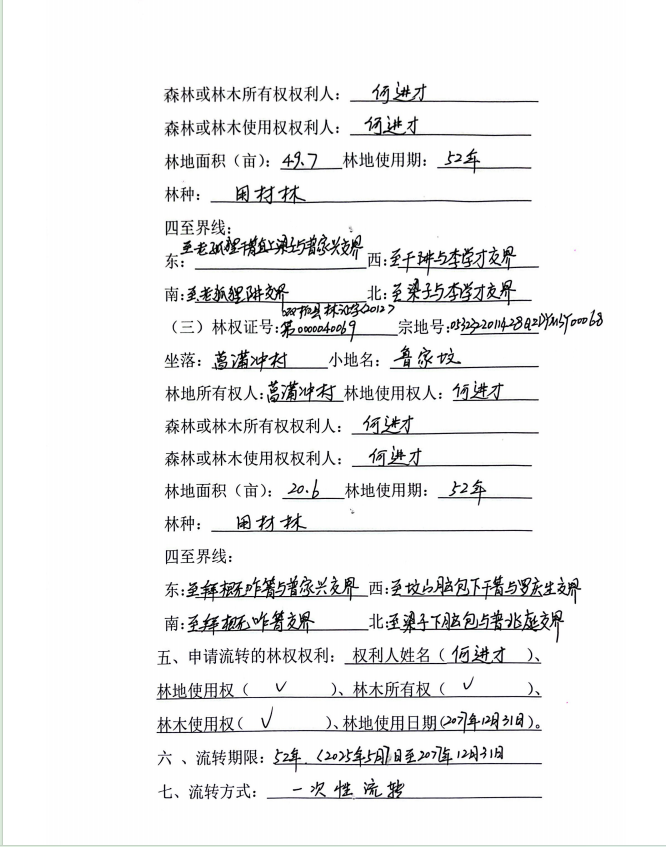 森林或林木所有权权利人： 何进才
森林或林木使用权权利人： 何进才
林地面积（亩）： 49.7 林地使用期： 52年
林种： 用材林
四至界线：
东: 至老狐狸箐 梁子与普家兴交界 西: 至干 与李学才交界
南: 至老狐狸 交界 北: 至梁子与李学才交界
县林证字(2012)
（三）林权证号: 第0000040069 宗地号:
坐落: 菖蒲冲村 小地名: 鲁家坟
林地所有权人: 菖蒲冲村 林地使用权人: 何进才
森林或林木所有权权利人： 何进才
森林或林木使用权权利人： 何进才
林地面积（亩）： 20.6 林地使用期: 52年
林种： 用材林
四至界线：
东: 至 咋箐与普家兴交界 西: 至坟山脑包下干箐与罗庆生交界
南: 至 咋箐交界 北: 至梁子下脑包与普兆 交界
五、申请流转的林权权利： 权利人姓名（ 何进才 ）、
林地使用权（ ✓ ）、林木所有权（ ✓ ）、
林木使用权（ ✓ ）、林地使用日期(207 年12月31日)。
六 、流转期限: 52年. (2025年5月 日至207 年12月31日
七、流转方式: 一次性流转